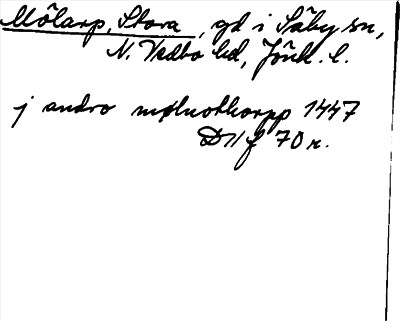 Mölarp, Stora, gd i Säby sn,
N. Vedbo hd, Jönk. l.
j andro mølnothorpp 1447
D 11 f 70 r.